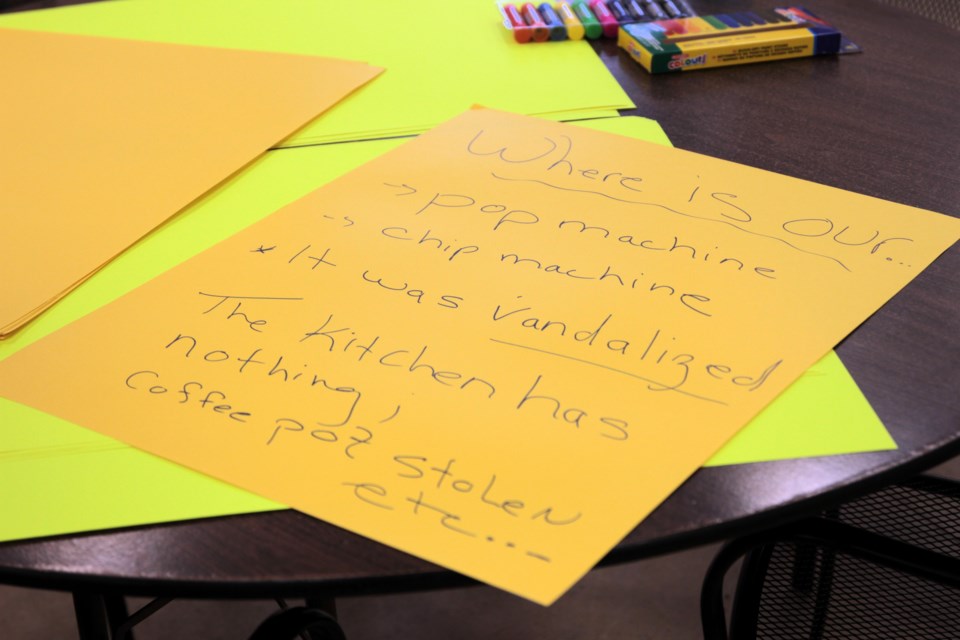 Where is our...
-> pop machine
-> chip machine
* It was vandalized
The Kitchen has
nothing,
coffee pot stolen
etc...
colours